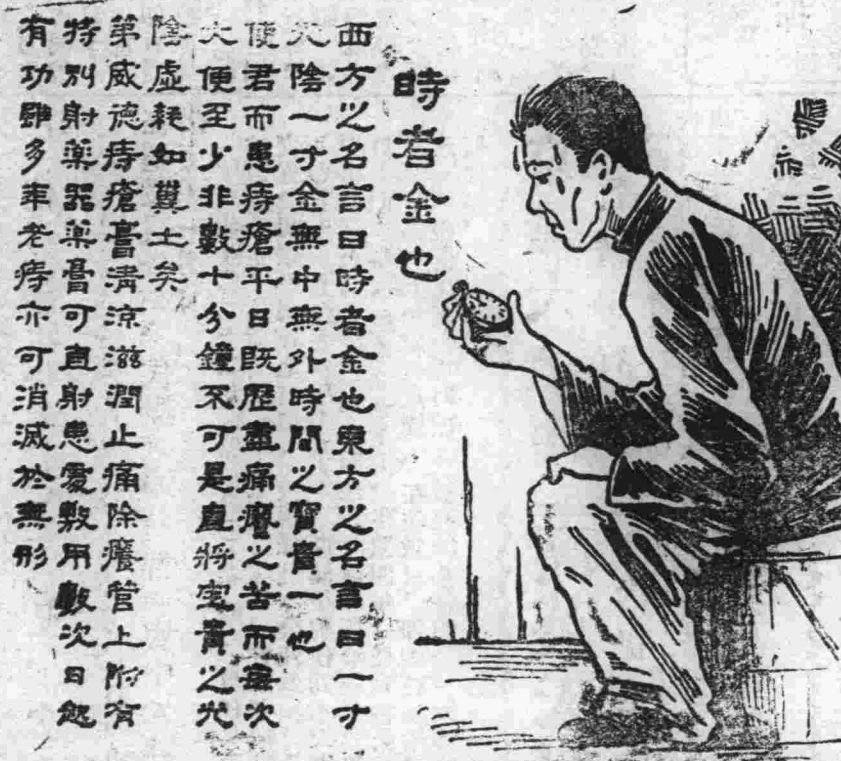 時者金也
西方之名言曰時者金也東方之名言曰一寸
光陰一寸金無中無外時間之寶貴一也
使君而患痔瘡平日既歷盡痛癢之苦而每次
大便至少非數十分鐘不可是直將寶貴之光
陰虛耗如糞土矣
第威德痔瘡膏清涼滋潤止痛除癢管上附有
特別射藥器藥膏可直射患處敷用數次日起
有功雖多年老痔亦可消滅於無形